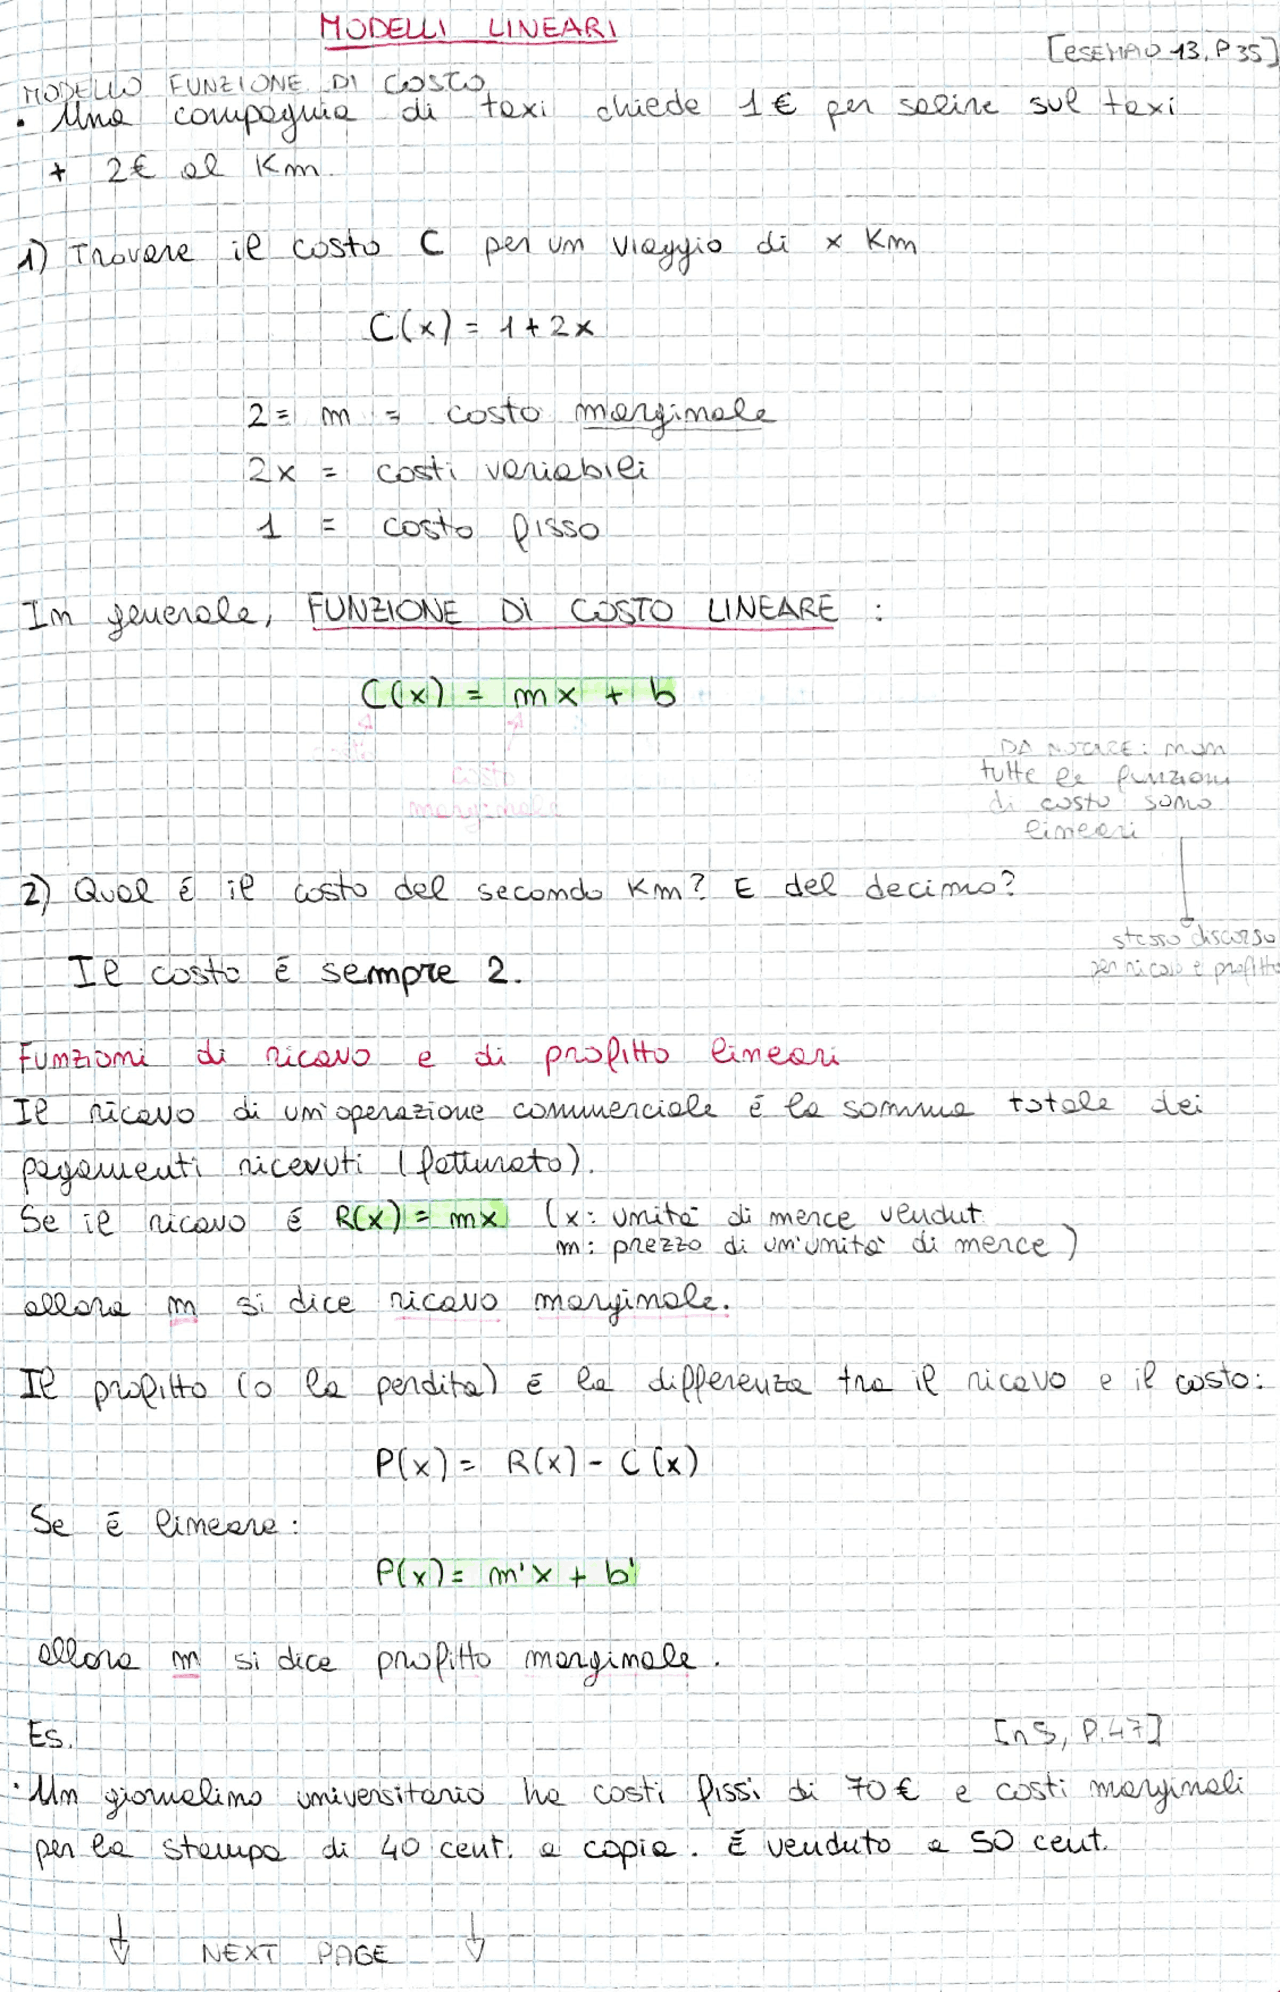 MODELLI LINEARI
[ESEMPIO 13, P 35]
MODELLO FUNZIONE DI COSTO
• Una compagnia di taxi chiede 1 € per salire sul taxi
+ 2€ al Km.
1) Trovare il costo C per un viaggio di x Km
C(x) = 1 + 2x
2 = m = costo marginale
2x = costi variabili
1 = costo fisso
In generale, FUNZIONE DI COSTO LINEARE :
C(x) = mx + b
costo
marginale
DA NOTARE: non
tutte le funzioni
di costo sono
lineari
2) Qual é il costo del secondo Km? E del decimo?
stesso discorso
per ricavo e profitto
Il costo é sempre 2.
Funzioni di ricavo e di profitto lineari
Il ricavo di un'operazione commerciale é la somma totale dei
pagamenti ricevuti (fatturato).
Se il ricavo é R(x) = mx (x: unità di merce vendut
m: prezzo di un'unità di merce)
allora m si dice ricavo marginale.
Il profitto (o la perdita) é la differenza tra il ricavo e il costo:
P(x) = R(x) - C(x)
Se é lineare:
P(x) = m'x + b'
allora m si dice profitto marginale.
Es.
[n 5, P.47]
• Un giornalino universitario ha costi fissi di 70 € e costi marginali
per la stampa di 40 cent. a copia. É venduto a 50 cent.
NEXT PAGE